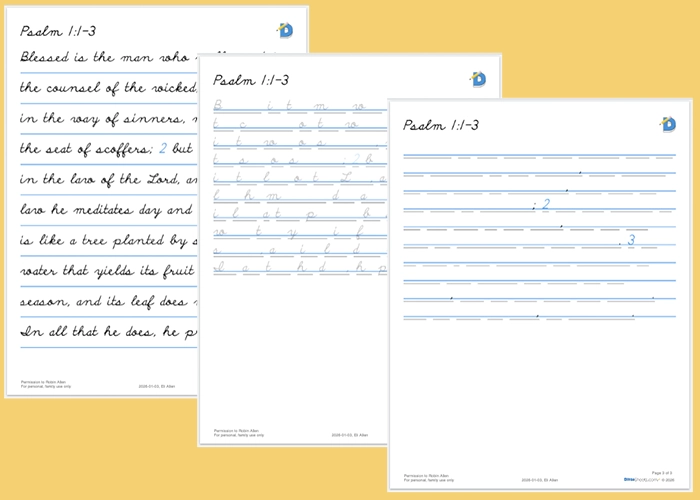 Psalm 1:1-3
Blessed is the man who
the counsel of the wicked,
in the way of sinners,
the seat of scoffers; 2 but
in the law of the Lord,
law he meditates day and
is like a tree planted by
water that yields its fruit
season, and its leaf does
In all that he does, he
Permission to Robin Allen
For personal, family use only
Psalm 1:1-3
B i t m w
t c o t w
i t w o s
t s o s ; 2 b
i t l o t L , a
l h m d a
i l a t p b
w t y i f
s , a i l d
I a t h d , h p
Permission to Robin Allen
For personal, family use only
Psalm 1:1-3
,
,
; 2
,
. 3
, ,
, .
Page 3 of 3
Permission to Robin Allen
For personal, family use only